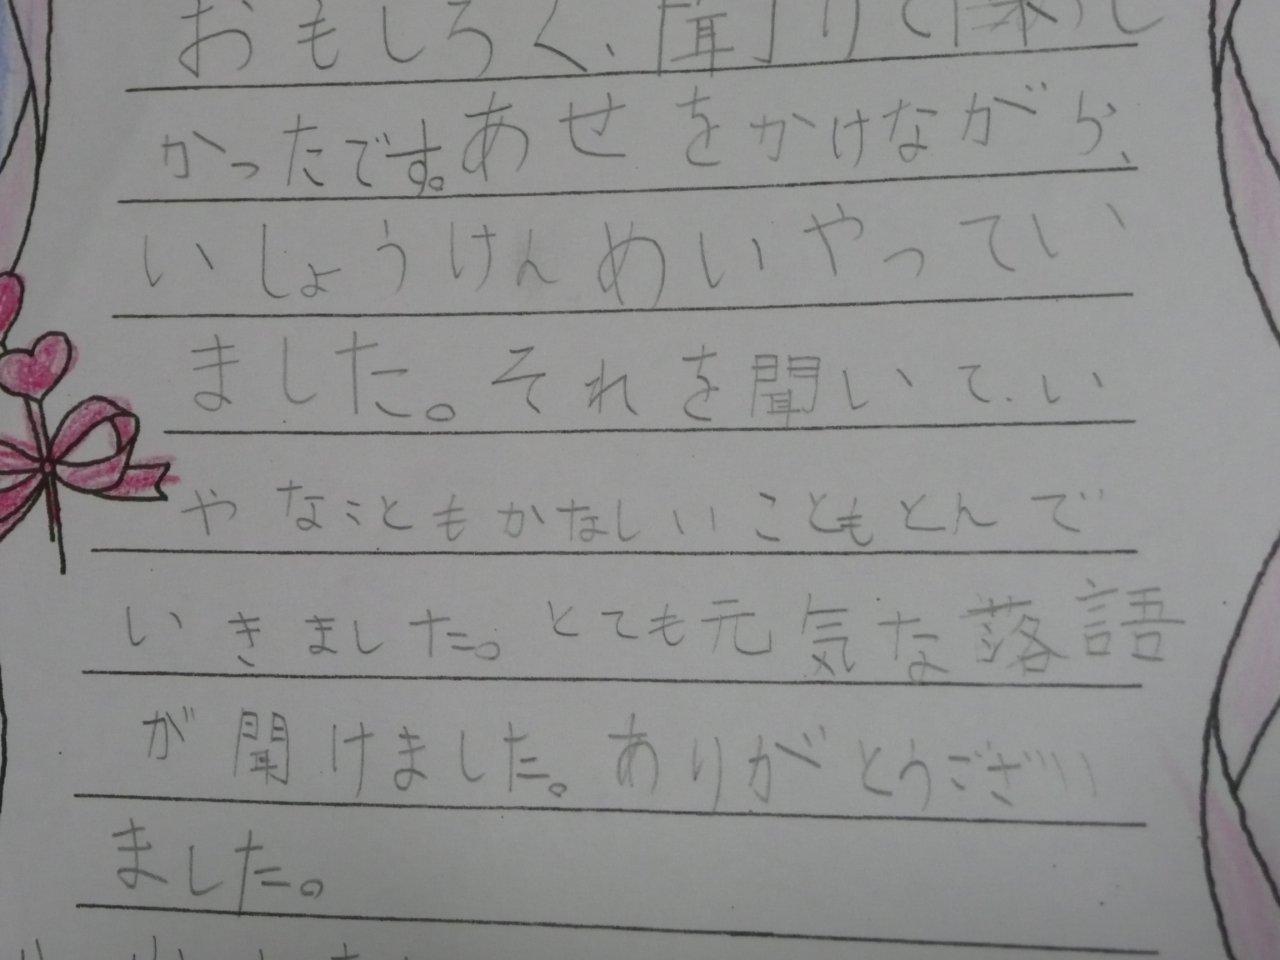 おもしろく、聞いて楽し
かったです。あせをかけながら、
いしょうけんめいやってい
ました。それを聞いてい
やなこともかなしいこともとんで
いきました。とても元気な落語
が聞けました。ありがとうござい
ました。